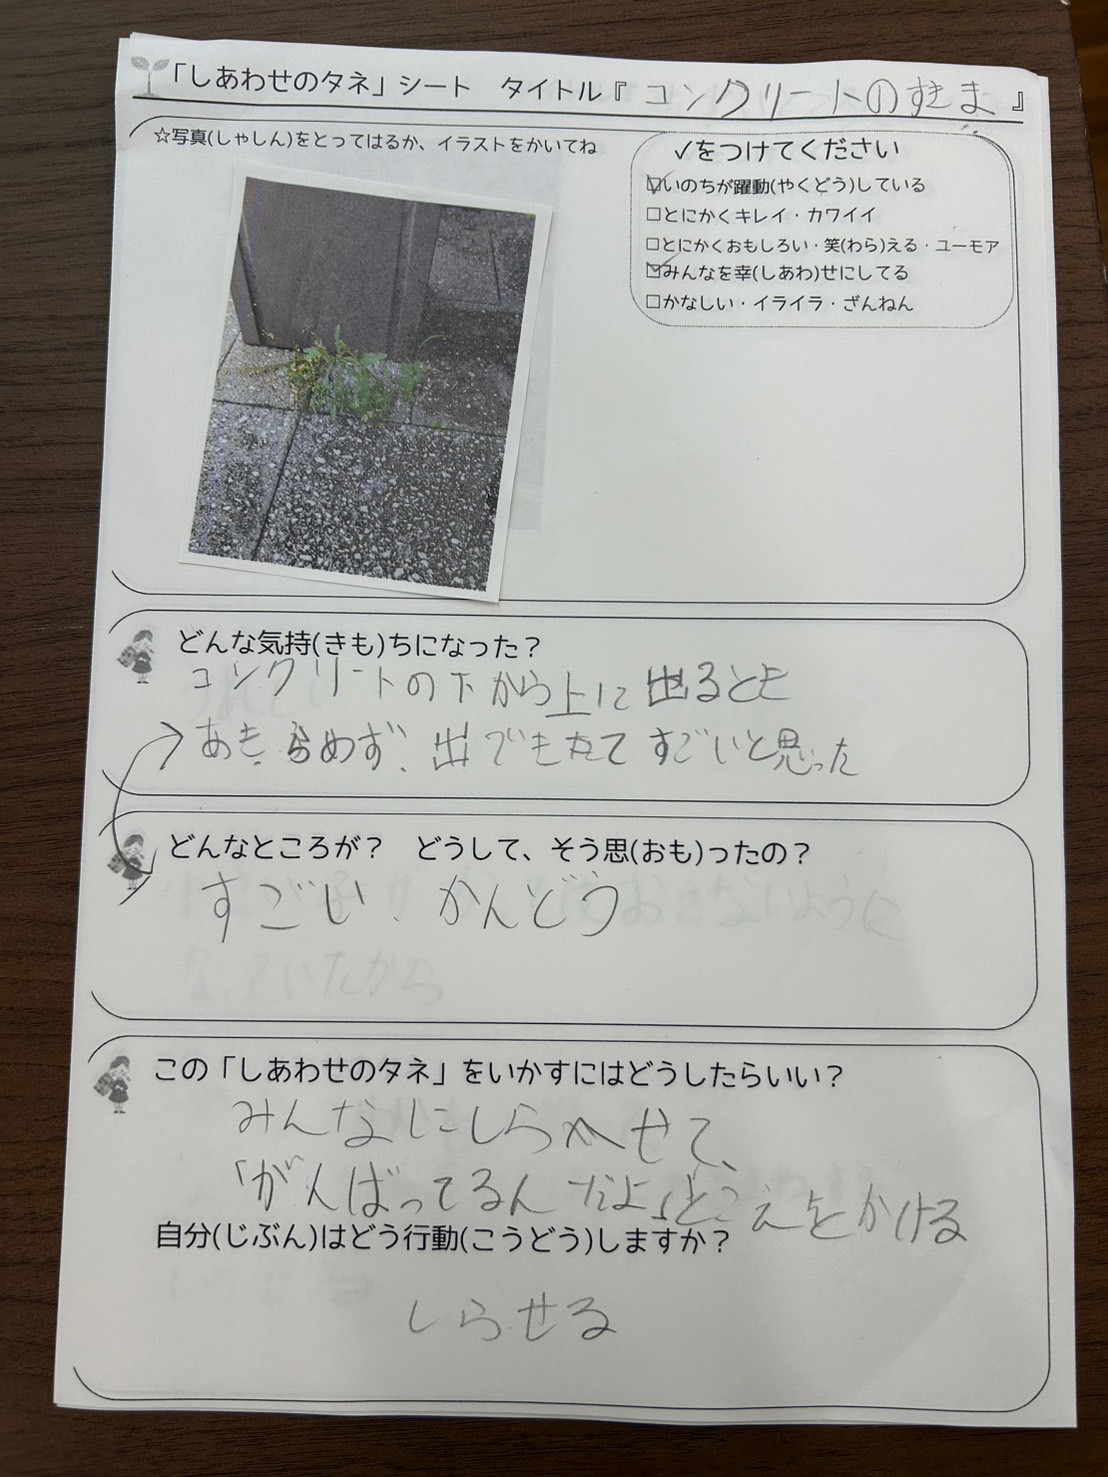 「しあわせのタネ」シート　タイトル『 コンクリートのすきま 』
☆写真(しゃしん)をとってはるか、イラストをかいてね
✓をつけてください
☑いのちが躍動(やくどう)している
□とにかくキレイ・カワイイ
□とにかくおもしろい・笑(わら)える・ユーモア
☑みんなを幸(しあわ)せにしてる
□かなしい・イライラ・ざんねん
どんな気持(きも)ちになった？
コンクリートの下から上に出るとき
あきらめず、出でもたてすごいと思った
どんなところが？　どうして、そう思(おも)ったの？
すごい、かんどう
この「しあわせのタネ」をいかすにはどうしたらいい？
みんなにしらせて、
「がんばってるんだよ」とこえをかける
自分(じぶん)はどう行動(こうどう)しますか？
しらせる